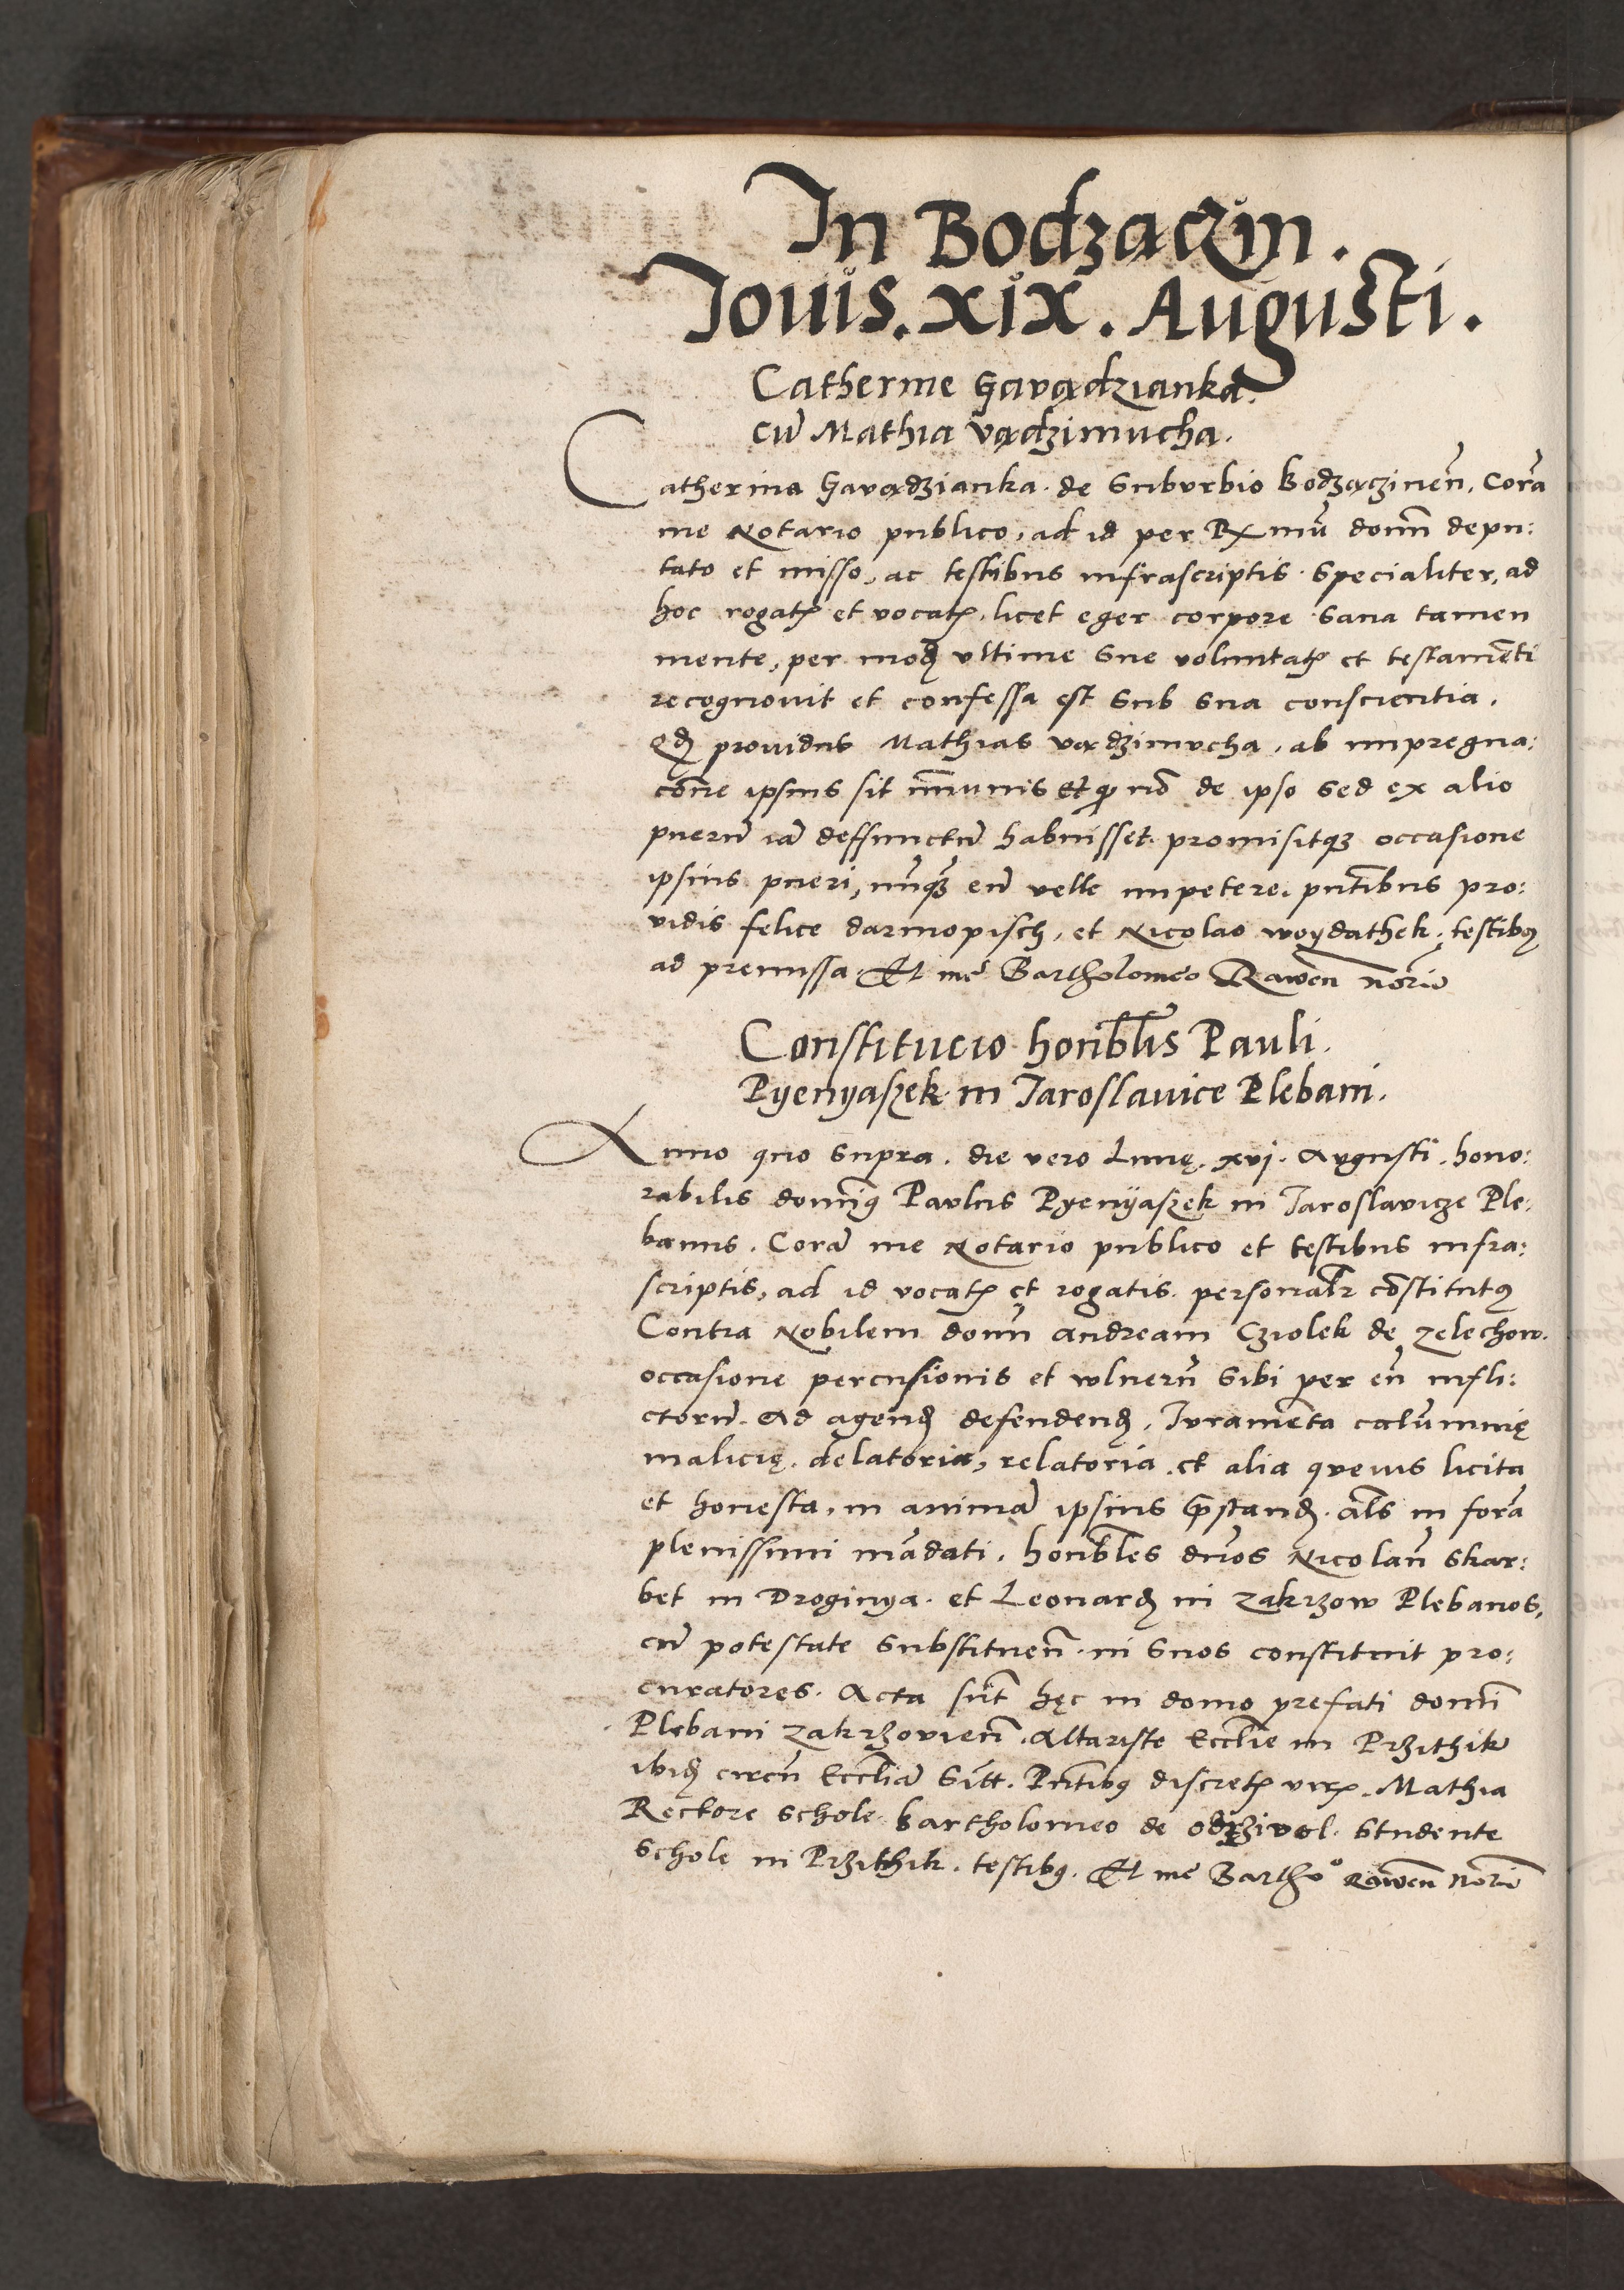 In Bodzączin.
Jouis. xix. Augusti.
Catherine Gavądzianka.
cū Mathia vądzimucha.
Catherina Gavądzianka. de Suburbio Bodzączineñ. Corā
me Notario publico, ad id per Rmū domn̄ depu:
tato et misso, ac testibus infrascriptis Specialiter, ad
hoc rogatꝭ et vocatꝭ. licet eger corpore Sana tamen
mente, per modꝫ vltime Sue voluntatꝭ et testamēti
recognouit et confessa est Sub Sua conscientia.
qđ prouidus Mathias vądzimucha, ab impregna:
cōne ipsius sit im̄unis Et ꝙ nō de ipso Sed ex alio
puerū iā deffunctū habuisset. promisitqꝫ occasione
ipsius pueri, nūqꝫ eū velle impetere. pn̄tibus pro:
vidis felice darmopisch, et Nicolao woydathek, testibꝯ
ad premissa. Et me Bartholomeo Raweñ nōrio
Constitucio honbl̄is Pauli.
Pyenyaszek in Jaroslauice Plebani.
Anno quo Supra. die vero Lunę. xvi. Augusti. hono:
rabilis domīꝯ Paulus Pyenÿaszek in Jaroslavicze Ple:
banus. Corā me Notario publico et testibus infra:
scriptis, ad id vocatꝭ et rogatis. personalr̄ cōstitutꝯ
Contra Nobilem domn̄ Andream Cziolek de Zelechow.
occasione percusionis et wlnerū Sibi per eū infli:
ctorū. Ad agendꝫ defendendꝫ. Juramēta calumnię
malicię. delatoria, relatoria. et alia quevis licita
et honesta. in animā ipsius p̄standꝫ. als̄ in forā
plenissimi mādati. honbl̄es dn̄os Nicolaū Skar:
bet in Droginya. et Leonardꝫ in Zakrzow Plebanos,
cū potestate Substitueñ. in Suos constituit pro:
curatores. Acta sūt hęc in domo prefati domī
Plebani Zakrzovieñ. Altariste Ecclīe in Przithik
ibidꝫ circū Eccliā Sitt. Pn̄tibꝯ discretꝭ virꝭ. Mathia
Rectore Schole. Bartholomeo de Odrzivol. Studente
Schole in Przithik. testibꝯ. Et me Bartho° Raweñ nōrio